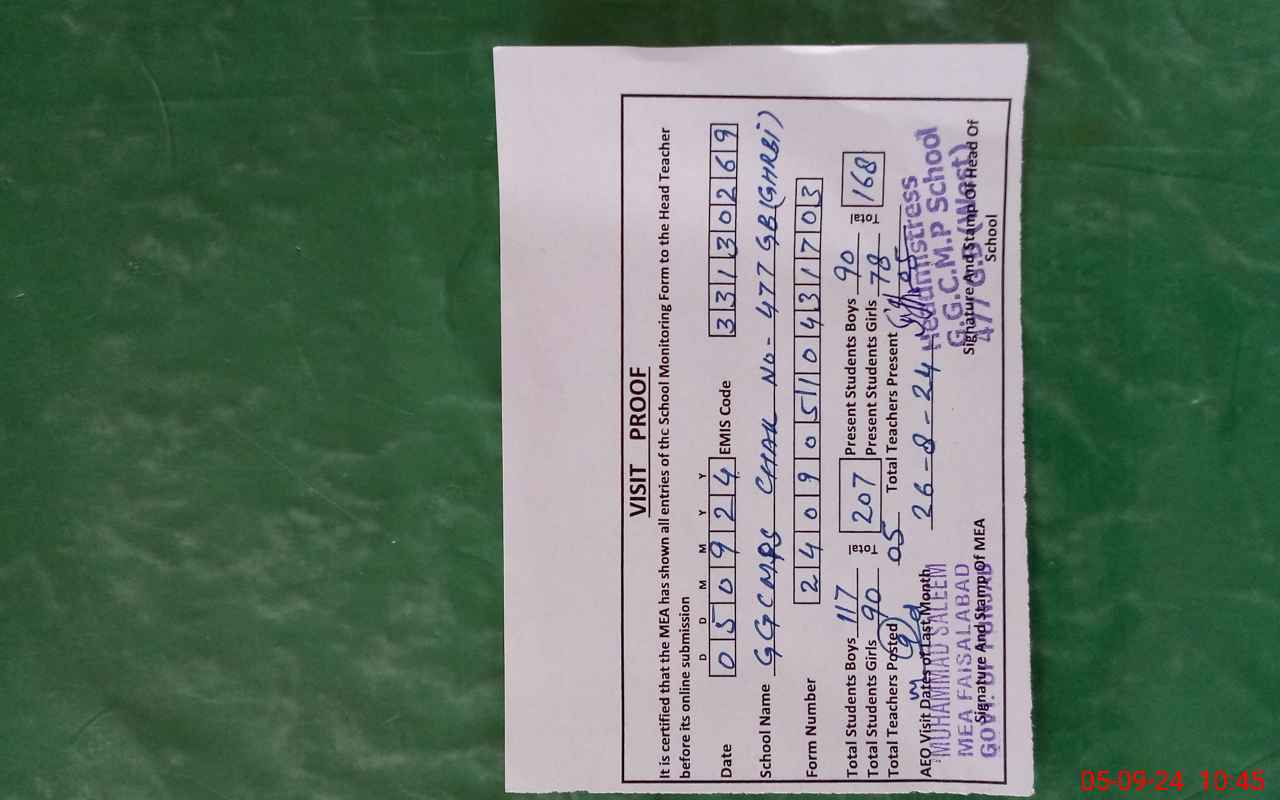 VISIT PROOF
It is certified that the MEA has shown all entries of the School Monitoring Form to the Head Teacher
before its online submission
D D M M Y Y
Date 050924 EMIS Code 33130269
School Name GGCMPS CHAK NO- 477 GB (GHRBI)
Form Number 24090510431703
Total Students Boys 117 Total 207 Present Students Boys 90 Total 168
Total Students Girls 90 Present Students Girls 78
Total Teachers Posted 05 Total Teachers Present 05
AEO Visit Dates of Last Month 26-8-24
MUHAMMAD SALEEM
MEA FAISALABAD
GOVT. OF PUNJAB
Signature And Stamp Of MEA
Headmistress
G.G.C.M.P School
477 G.B (West)
Signature And Stamp Of Head Of
School
05-09-24 10:45